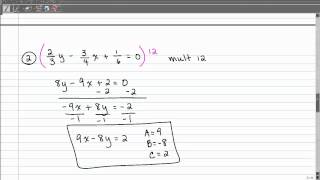 ② (2/3 y - 3/4 x + 1/6 = 0) 12 mult 12
8y - 9x + 2 = 0
-2 -2
-9x + 8y = -2
-1 -1 -1
9x - 8y = 2 A = 9
B = -8
C = 2